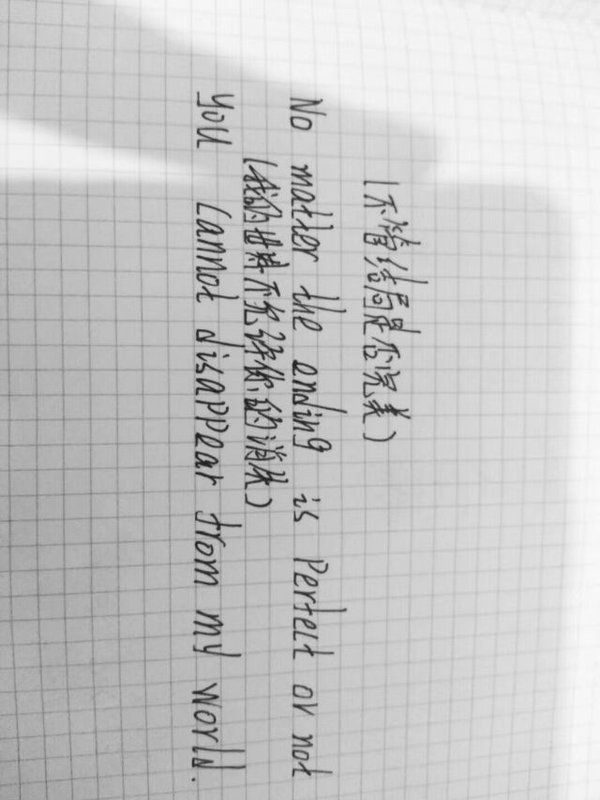 (不管结局是否完美)
No matter the ending is Perfect or not
(我的世界不允许你的消失)
you cannot disappear from my world.